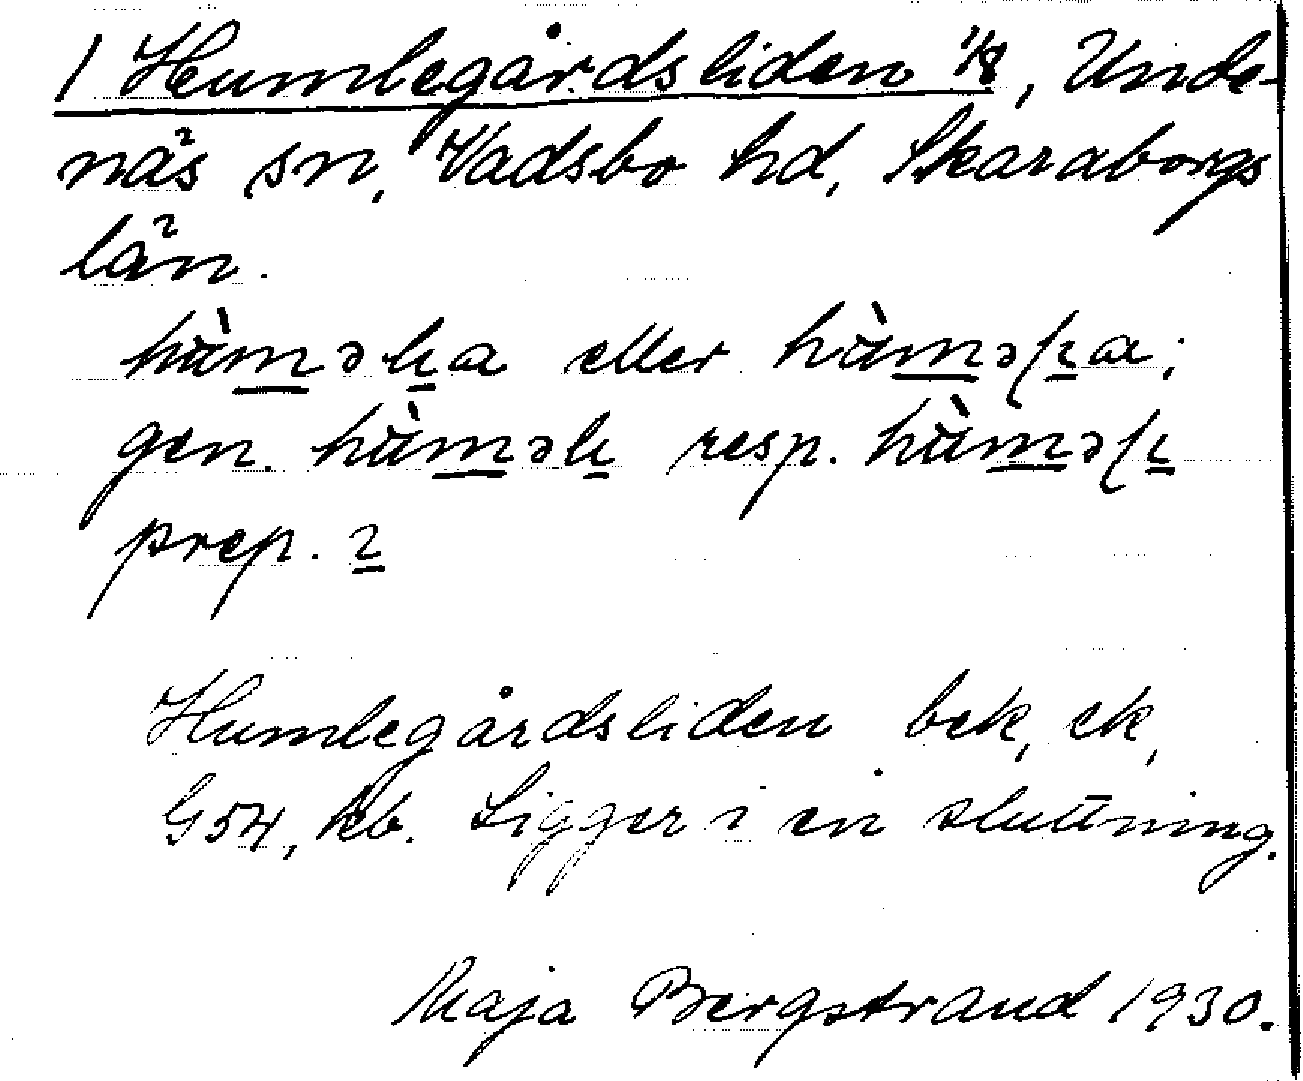 1 Humlegårdsliden 1/8, Unde-
näs sn, Vadsbo hd, Skaraborgs
län.
eller
gen. resp.
prep. 2
Humlegårdsliden bek, ek,
G54, kb. Ligger i en sluttning.
Maja Bergstrand 1930.